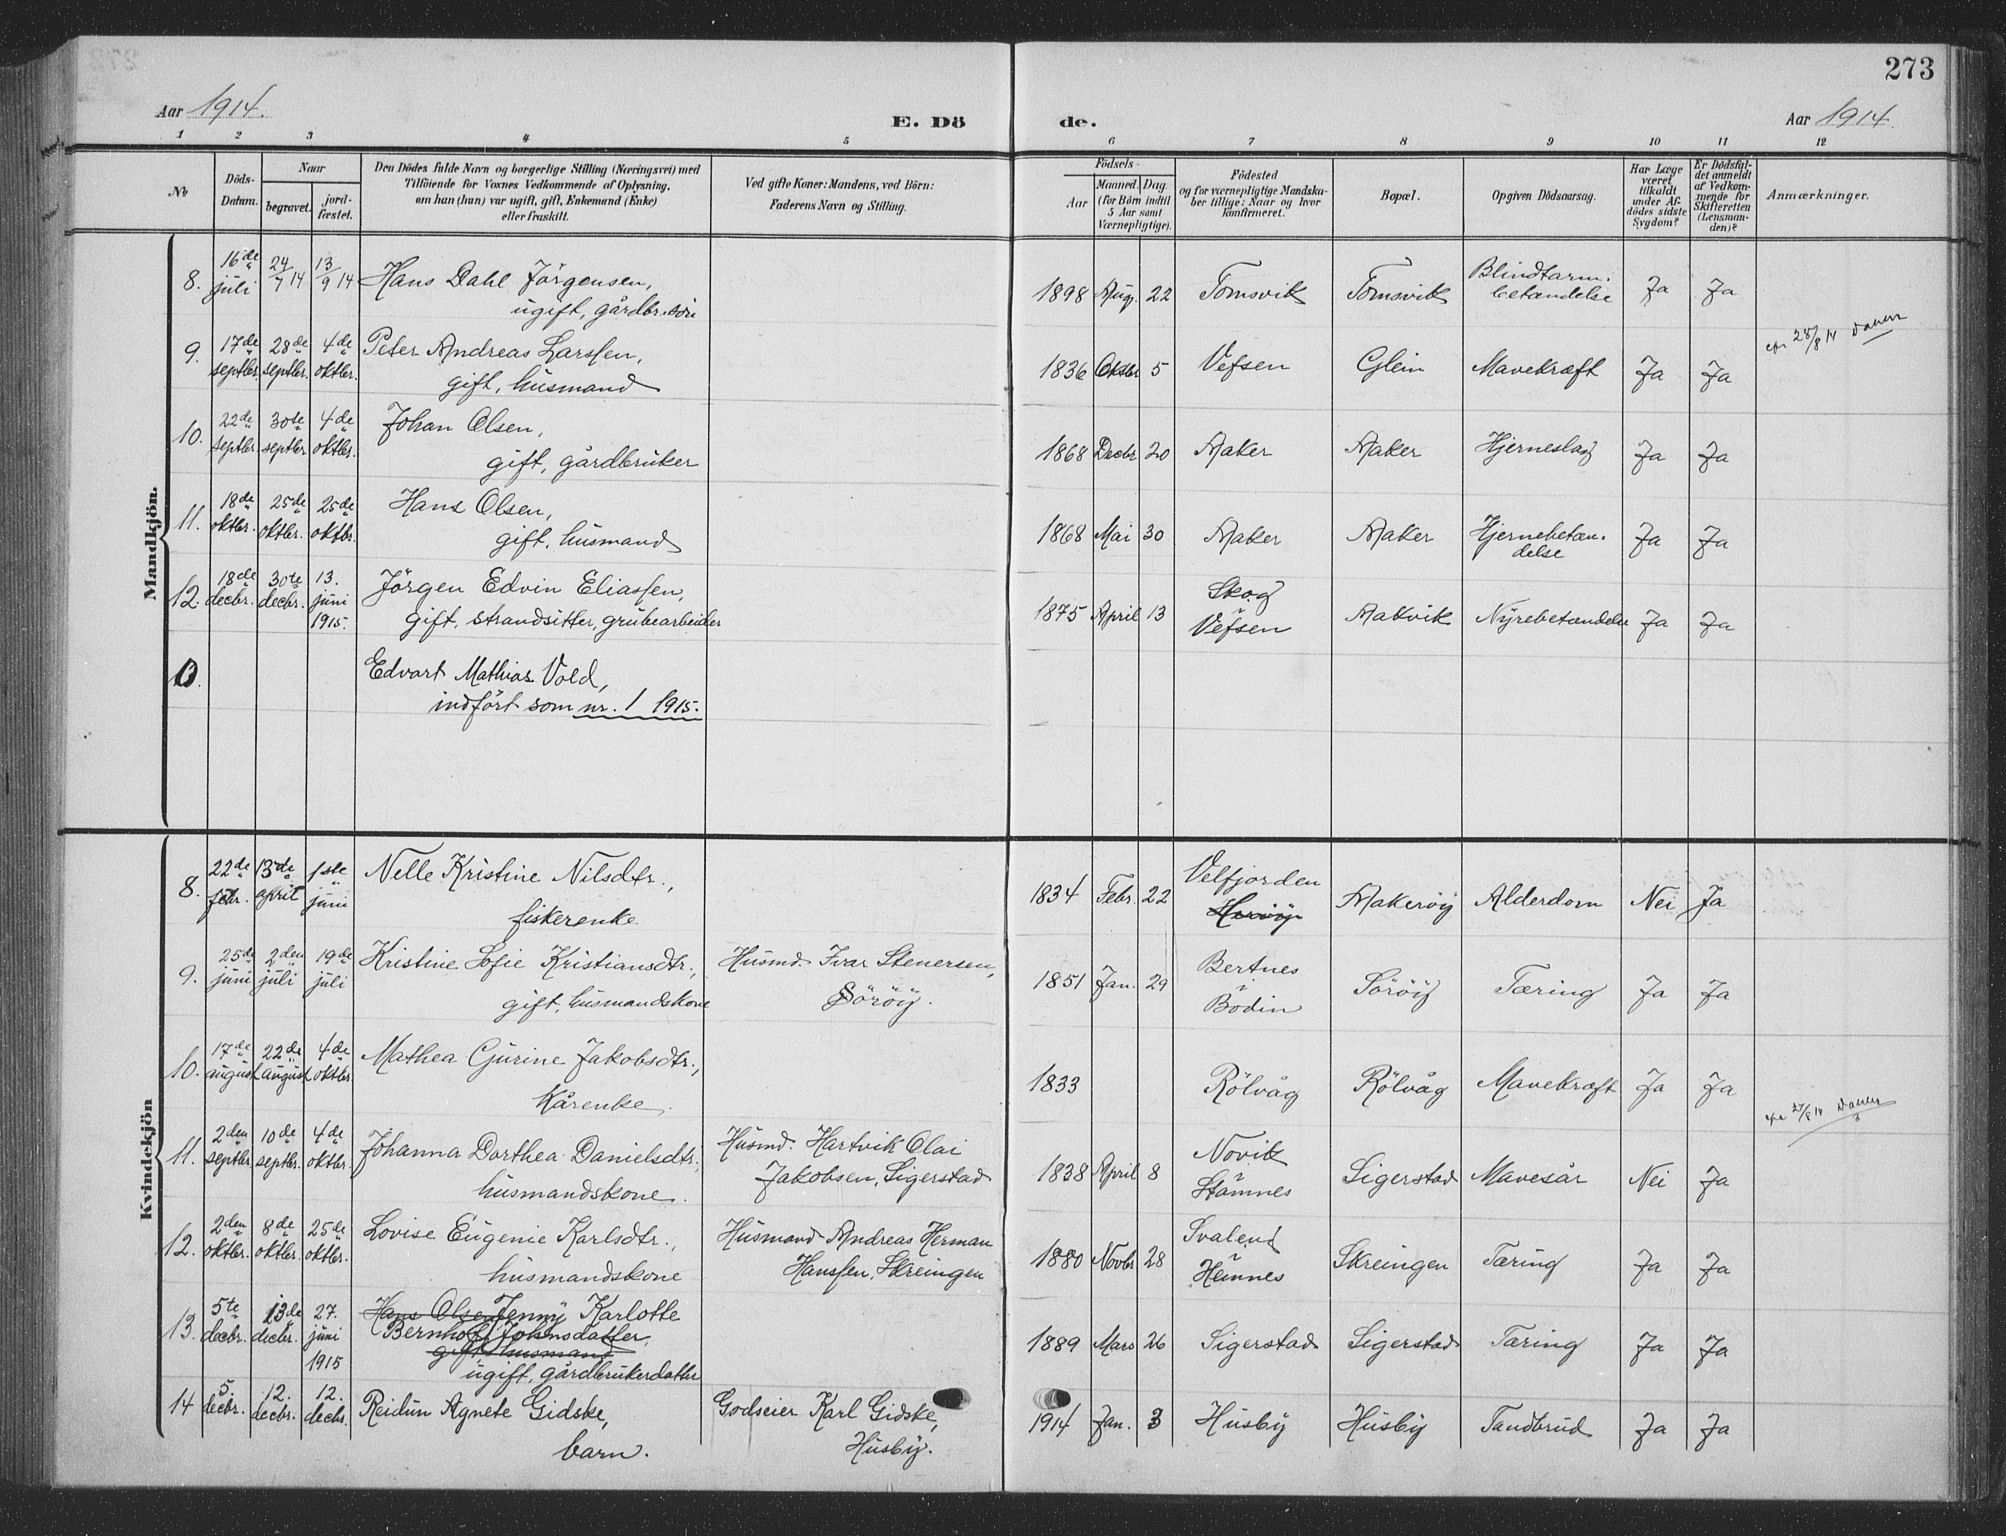 273
Aar 1914.
E. Dö
de.
Aar 1914.
1 2 3 4 5 6 7 8 9 10 11 12
No
Döds-
Datum.
Naar
begravet.
jord-
fæstet.
Den Dödes fulde Navn og borgerlige Stilling (Næringsvei) med
Tilföiende for Voxnes Vedkommende af Oplysning,
om han (hun) var ugift, gift, Enkemand (Enke)
eller fraskilt.
Ved gifte Koner: Mandens, ved Börn:
Faderens Navn og Stilling.
Födsels-
Aar
Maaned. Dag.
(for Börn indtil
5 Aar samt
Værnepligtige).
Födested
og for værnepligtige Mandska-
ber tillige: Naar og hvor
konfirmeret.
Bopæl.
Opgiven Dödsaarsag.
Har Læge
været
tilkaldt
under Af-
dödes sidste
Sygdom?
Er Dödsfal-
det anmeldt
af Vedkom-
mende for
Skifteretten
(Lensman-
den)?
Anmærkninger.
Mandkjön.
8. 16de juli 24/7 14 13/9 14 Hans Dahl Jörgensen,
ugift, gårdbr.sön
1898 Aug. 22 Tomsvik Tomsvik Blindtarm-
betændelse Ja Ja
28/8 14
9. 17de septbr. 28de septbr. 4de oktbr. Peter Andreas Larssen,
gift, husmand
1836 Oktbr 5 Vefsen Glein Mavekræft Ja Ja
10. 22de septbr. 30te septbr. 4de oktbr. Johan Olsen,
gift, gårdbruker
1868 Decbr 20 Aaker Aaker Hjerneslag Ja Ja
11. 18de oktbr. 25de oktbr. 25de oktbr. Hans Olsen,
gift, husmand
1868 Mai 30 Aaker Aaker Hjernebetæn-
delse Ja Ja
12. 18de decbr. 30te decbr. 13. juni 1915. Jörgen Edvin Eliassen,
gift, strandsitter, grubearbeider
1875 April 13 Skog
i
Vefsen Aakvik Nyrebetændelse Ja Ja
Edvart Mathias Vold,
indfört som nr. 1 1915.
Kvindekjön
8. 22de febr. 13de april 1ste juni Nelle Kristine Nilsdtr.,
fiskerenke
1834 Febr. 22 Velfjorden
Heröy Aakeröy Alderdom Nei Ja
9. 25de juni 2den juli 19de juli Kristine Sofie Kristiansdtr.,
gift, husmandskone
Husmd. Ivar Stenersen,
Söröy.
1851 Jan. 29 Bertnes
i
Bodin Söröy Tæring Ja Ja
10. 17de august 22de august 4de oktbr. Mathea Gurine Jakobsdtr.,
Kårenke.
1833 Rölvåg Rölvåg Mavekræft Ja Ja
27/8 14
11. 2den septbr. 10de septbr. 4de oktbr. Johanna Dorthea Danielsdtr.,
husmandskone.
Husmd. Hartvik Olai
Jakobsen, Sigerstad
1838 April 8 Novik
Stamnes Sigerstad Mavesår Nei Ja
12. 2den oktbr. 8de oktbr. 25de oktbr. Lovise Eugenie Karlsdtr.,
husmandskone
Husmand Andreas Herman
Hanssen, Skreingen
1880 Novbr 28 Svalend
i
Hemnes Skreingen Tæring Ja Ja
13. 5te decbr. 13de decbr. 27. juni 1915 Hans Olsen Jenny Karlotte
Bernhoff Johnsdatter,
gift husmand
ugift, gårdbrukerdatter
1889 Mars 26 Sigerstad Sigerstad Tæring Ja Ja
14 5. decbr. 12. decbr. 12. decbr. Reidun Agnete Gidske,
barn.
Godseier Karl Gidske,
Husby.
1914 Jan. 3 Husby Husby Tandbrud Ja Ja